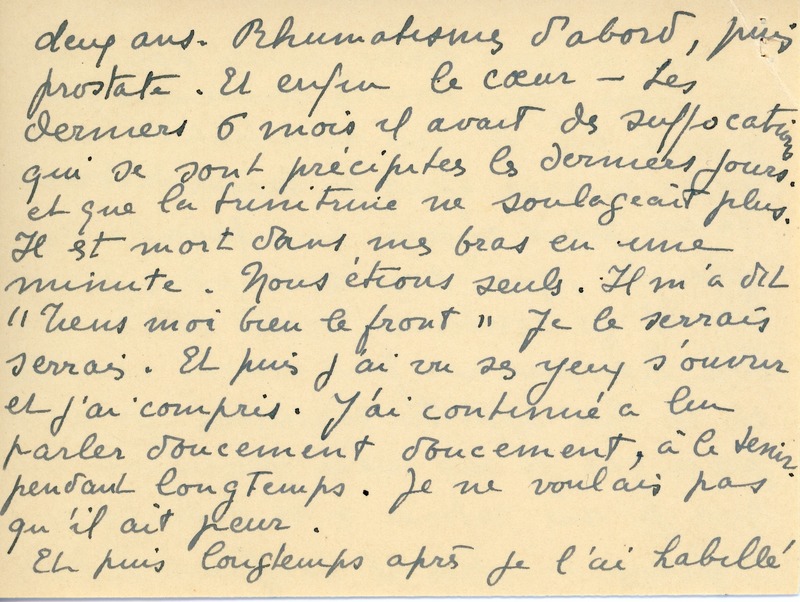 deux ans. Rhumatismes d'abord, puis
prostate. Et enfin le cœur — Les
derniers 6 mois il avait des suffocations
qui se sont précipitées les derniers jours.
et que la trinitrine ne soulageait plus.
Il est mort dans mes bras en une
minute. Nous étions seuls. Il m'a dit
"Tiens moi bien le front" Je le serrais
serrais. Et puis j'ai vu ses yeux s'ouvrir
et j'ai compris. J'ai continué a lui
parler doucement doucement, à le tenir
pendant longtemps. Je ne voulais pas
qu'il ait peur.
Et puis longtemps après je l'ai habillé